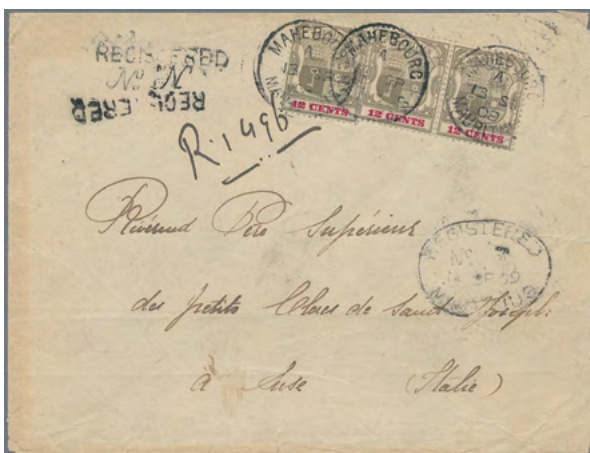 REGISTERED
No. N
REGISTERED
R. 1496
MAHEBOURG
A
13
MAHEBOURG
A
SP
MAHEBOURG
A
13 S
09
MAURITIUS
12 CENTS
12 CENTS
12 CENTS
Révérend Père Supérieur
REGISTERED
SP 09
MAURITIUS
des petits Clercs de Saint Joseph
à Suse (Italie)